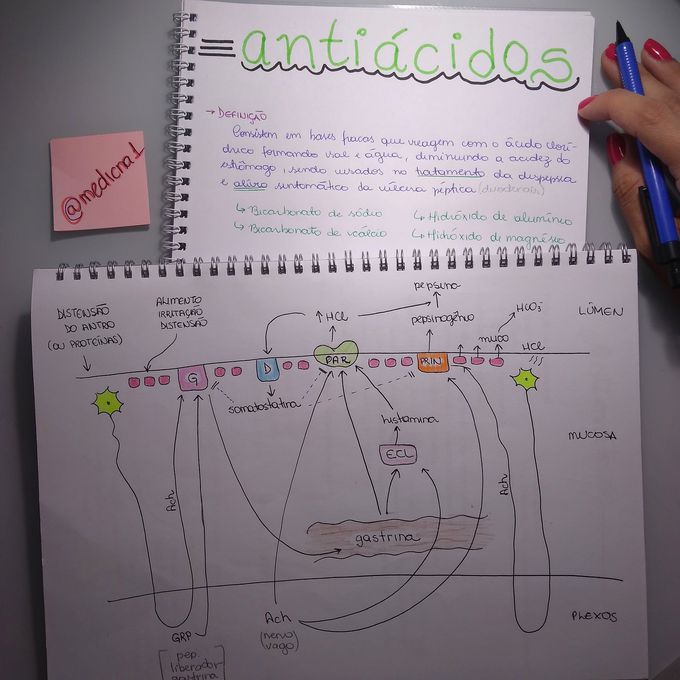 = antiácidos
→ DEFINIÇÃO
Consistem em bases fracas que reagem com o ácido clorí-
drico formando sal e água, diminuindo a acidez do
estômago, sendo usados no tratamento da dispepsia
e alívio sintomático da úlcera péptica (duodenal)
↳ Bicarbonato de sódio ↳ Hidróxido de alumínio
↳ Bicarbonato de cálcio ↳ Hidróxido de magnésio
@medicra1
DISTENSÃO
DO ANTRO
(OU PROTEÍNAS)
ALIMENTO
IRRITAÇÃO
DISTENSÃO
↑ HCl
pepsina
pepsinogênio
muco
HCO3-
HCl
LÚMEN
G
D
PAR
PRIN
somatostatina
histamina
ECL
MUCOSA
Ach
Ach
gastrina
PLEXOS
GRP
[pep.
liberador
gastrina]
Ach
(nervo
vago)